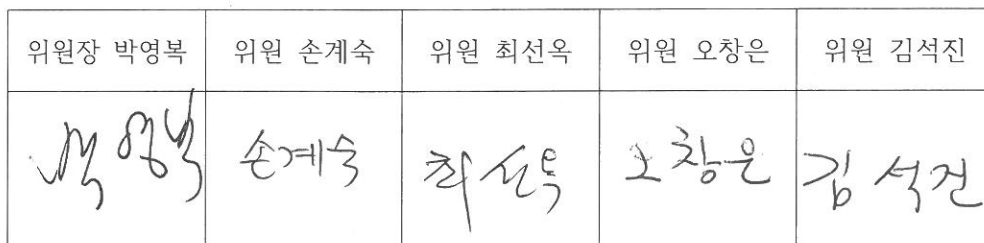 위원장 박영복 위원 손계숙 위원 최선옥 위원 오창은 위원 김석진
박영복 손계숙 최선옥 오창은 김석진